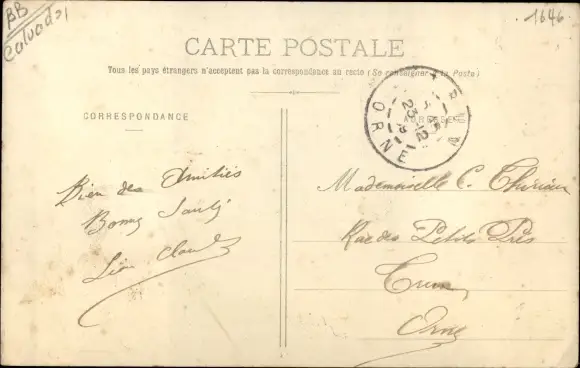 BB
Calvados
1646
CARTE POSTALE
Tous les pays étrangers n'acceptent pas la correspondance au recto (Se renseigner à la Poste)
CORRESPONDANCE
ADRESSE
TRUN
23
12
ORNE
Bien des Amitiés
Bonne Santé
Léon
Mademoiselle C.
Rue des Petits Prés
Trun
Orne